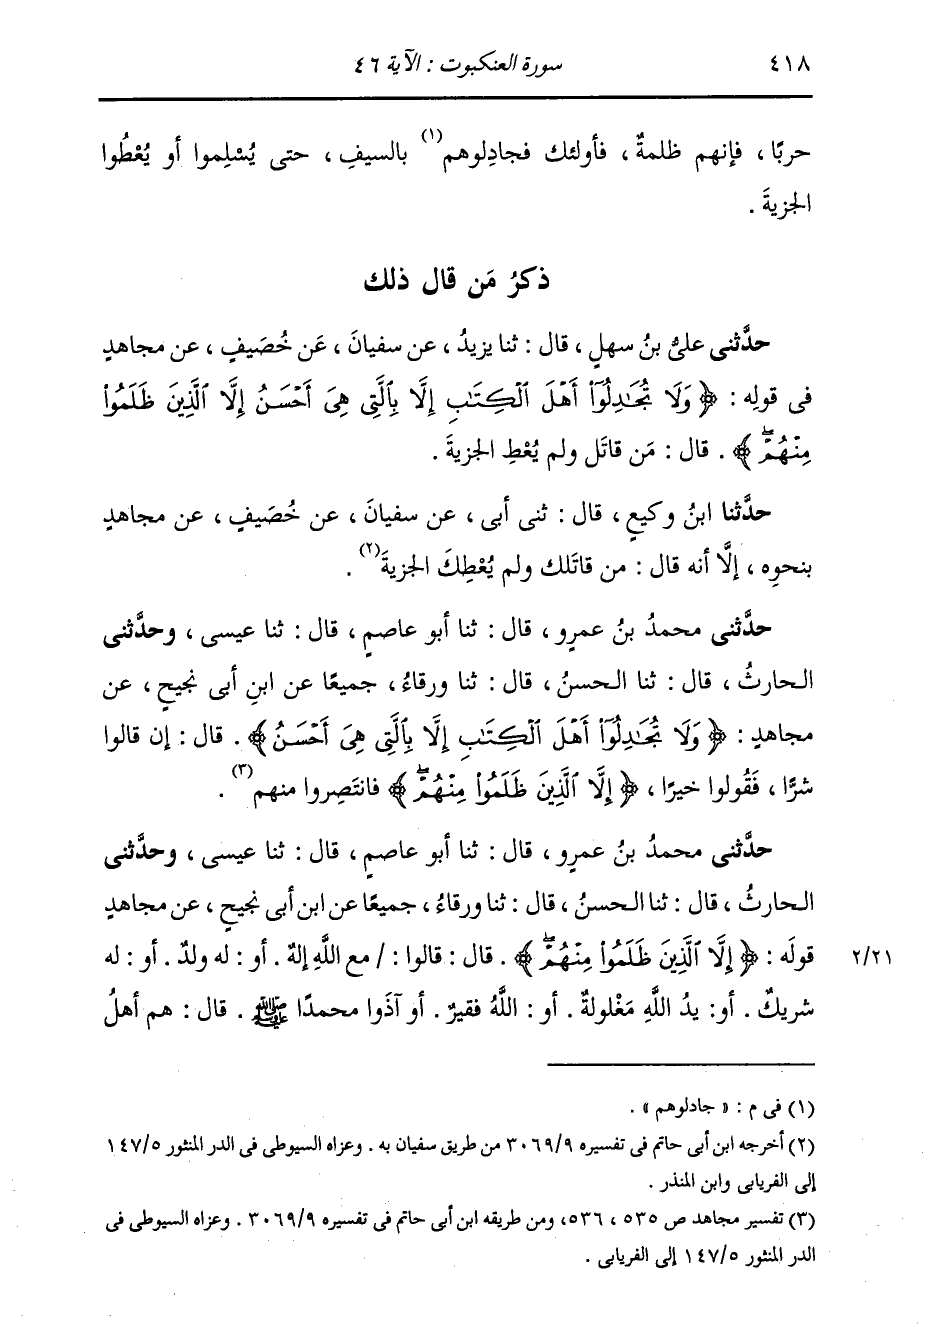 ٤١٨ سورة العنكبوت : الآية ٤٦
حربًا ، فإنهم ظلمةٌ ، فأولئك فجادِلوهم(١) بالسيفِ ، حتى يُسْلِموا أو يُعْطُوا
الجزيةَ .
ذكرُ مَن قال ذلك
حدَّثنى علىُّ بنُ سهلٍ ، قال : ثنا يزيدُ ، عن سفيانَ ، عَن خُصَيفٍ ، عن مجاهدٍ
فى قولِه : ﴿ وَلَا تُجَٰدِلُوٓا۟ أَهْلَ ٱلْكِتَٰبِ إِلَّا بِٱلَّتِى هِىَ أَحْسَنُ إِلَّا ٱلَّذِينَ ظَلَمُوا۟
مِنْهُمْۖ ﴾ . قال : مَن قاتَل ولم يُعْطِ الجزيةَ .
حدَّثنا ابنُ وكيعٍ ، قال : ثنى أبى ، عن سفيانَ ، عن خُصَيفٍ ، عن مجاهدٍ
بنحوِه ، إلَّا أنه قال : من قاتَلك ولم يُعْطِكَ الجزيةَ(٢) .
حدَّثنى محمدُ بنُ عمرٍو ، قال : ثنا أبو عاصمٍ ، قال : ثنا عيسى ، وحدَّثنى
الحارثُ ، قال : ثنا الحسنُ ، قال : ثنا ورقاءُ ، جميعًا عن ابنِ أبى نجيحٍ ، عن
مجاهدٍ : ﴿ وَلَا تُجَٰدِلُوٓا۟ أَهْلَ ٱلْكِتَٰبِ إِلَّا بِٱلَّتِى هِىَ أَحْسَنُ ﴾ . قال : إن قالوا
شرًّا ، فَقُولوا خيرًا ، ﴿ إِلَّا ٱلَّذِينَ ظَلَمُوا۟ مِنْهُمْۖ ﴾ فانتَصِروا منهم(٣) .
حدَّثنى محمدُ بنُ عمرٍو ، قال : ثنا أبو عاصمٍ ، قال : ثنا عيسى ، وحدَّثنى
الحارثُ ، قال : ثنا الحسنُ ، قال : ثنا ورقاءُ ، جميعًا عن ابن أبى نجيحٍ ، عن مجاهدٍ
قولَه : ﴿ إِلَّا ٱلَّذِينَ ظَلَمُوا۟ مِنْهُمْۖ ﴾ . قال : قالوا : / مع اللَّهِ إلهٌ . أو : له ولدٌ . أو : له ٢/٢١
شريكٌ . أو : يدُ اللَّهِ مَغْلولةٌ . أو : اللَّهُ فقيرٌ . أو آذَوا محمدًا ﷺ . قال : هم أهلُ
(١) فى م : « جادلوهم » .
(٢) أخرجه ابن أبى حاتم فى تفسيره ٣٠٦٩/٩ من طريق سفيان به . وعزاه السيوطى فى الدر المنثور ١٤٧/٥
إلى الفريابى وابن المنذر .
(٣) تفسير مجاهد ص ٥٣٥ ، ٥٣٦، ومن طريقه ابن أبى حاتم فى تفسيره ٣٠٦٩/٩ . وعزاه السيوطى فى
الدر المنثور ١٤٧/٥ إلى الفريابى .